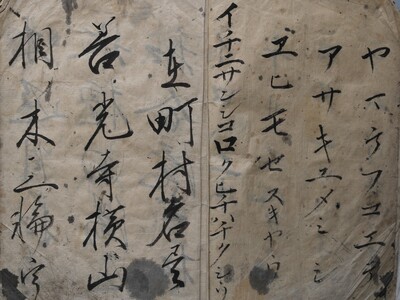 ヤマケフコエテ
アサキユメミシ
ヱヒモセスキヤウ
イチニサンシコロクヒチハチクシウ
在町村名
善光寺横山
相木三輪宇